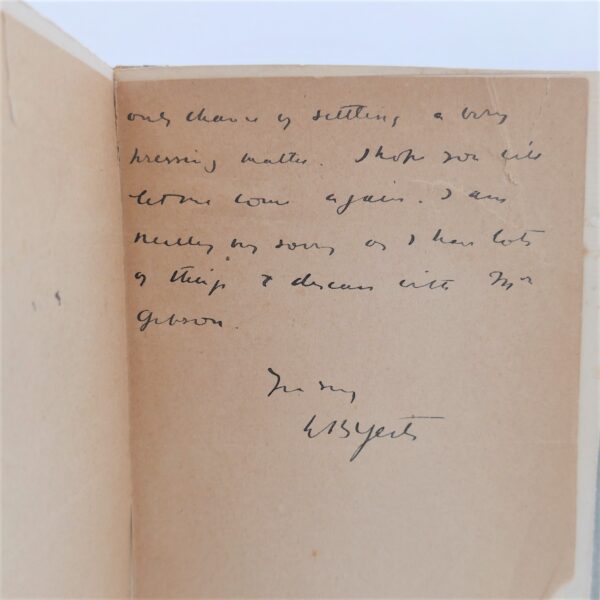 only chance of settling a very
pressing matter. I hope you will
let me come again. I am
really very sorry as I have lots
of things to discuss with Mr
Gibson.
Yrs sny
WBYeats